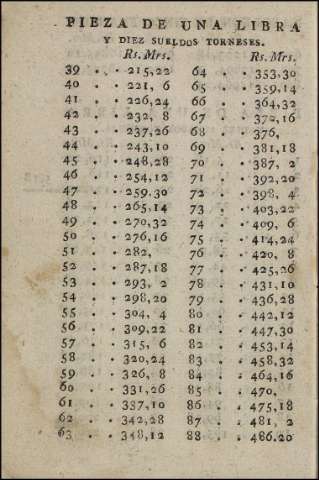 PIEZA DE UNA LIBRA
Y DIEZ SUELDOS TORNESES.
Rs. Mrs. Rs. Mrs.
39 . . 215,22 64 . . 353,30
40 . . 221, 6 65 . . 359,14
41 . . 226,24 66 . . 364,32
42 . . 232, 8 67 . . 370,16
43 . . 237,26 68 . . 376,
44 . . 243,10 69 . . 381,18
45 . . 248,28 70 . . 387, 2
46 . . 254,12 71 . . 392,20
47 . . 259.30 72 . . 398, 4
48 . . 265,14 73 . . 403,22
49 . . 270,32 74 . . 409, 6
50 . . 276,16 75 . . 414,24
51 . . 282, 76 . . 420, 8
52 . . 287,18 77 . . 425,26
53 . . 293, 2 78 . . 431,10
54 . . 298,20 79 . . 436,28
55 . . 304, 4 80 . . 442,12
56 . . 309,22 81 . . 447,30
57 . . 315, 6 82 . . 453,14
58 . . 320,24 83 . . 458,32
59 . . 326, 8 84 . . 464,16
60 . . 331,26 85 . . 470,
61 . . 337,10 86 . . 475,18
62 . . 342,28 87 . . 481, 2
63 . . 348,12 88 . . 486.20